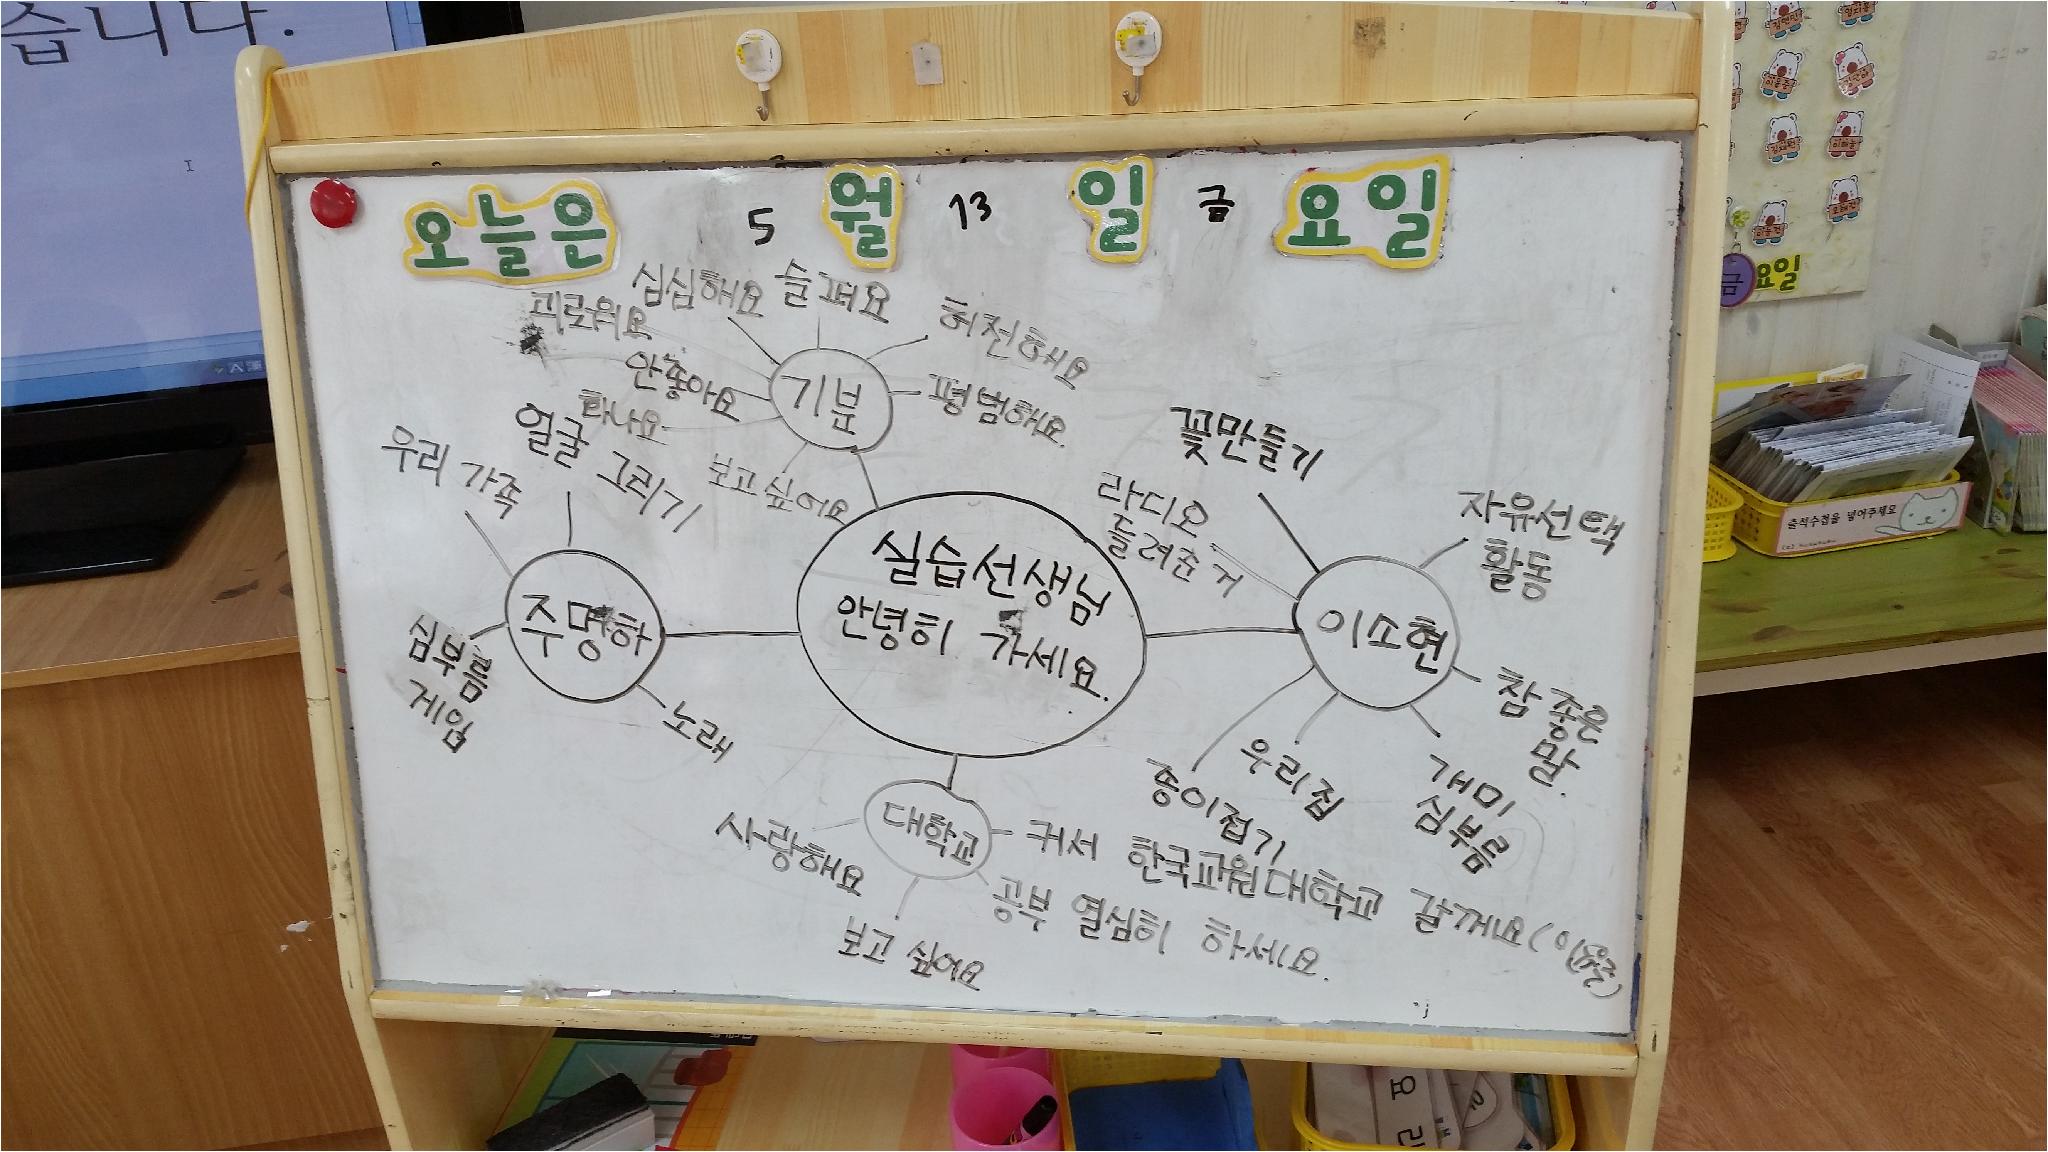 습니다.
오늘은 5 월 13 일 금 요일
심심해요
슬퍼요
허전해요
괴로워요
안좋아요
기분
평범해요.
화나요
보고싶어요
우리 가족
얼굴 그리기
주명하
심부름
게임
노래
실습선생님
안녕히 가세요.
꽃만들기
라디오
들려준 거
자유선택
활동
이소현
참 좋은
말.
개미
심부름
우리집
종이접기
대학교
사랑해요
보고 싶어요
커서 한국교원대학교 갈께요
공부 열심히 하세요.
금요일
출석수첩을 넣어주세요